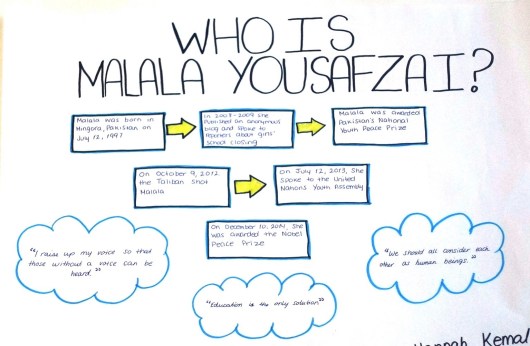 WHO IS
MALALA YOUSAFZAI?
Malala was born in
Mingora, Pakistan on
July 12, 1997
In 2008-2009 She
Published an anonymous
blog and spoke to
reporters about girls'
school closing
Malala was awarded
Pakistan's National
Youth Peace Prize
On October 9, 2012
the Taliban shot
Malala
On July 12, 2013, She
spoke to the United
Nations Youth Assembly
On December 10, 2014, She
was awarded the Nobel
Peace Prize
"I raise up my voice so that
those without a voice can be
heard."
"Education is the only solution"
"We should all consider each
other as human beings."
Hannah Kemal